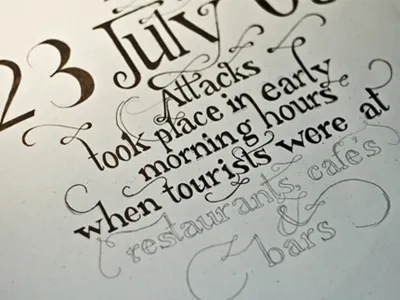 23 July 05
Attacks
took place in early
morning hours
when tourists were at
restaurants, cafe's
&
bars